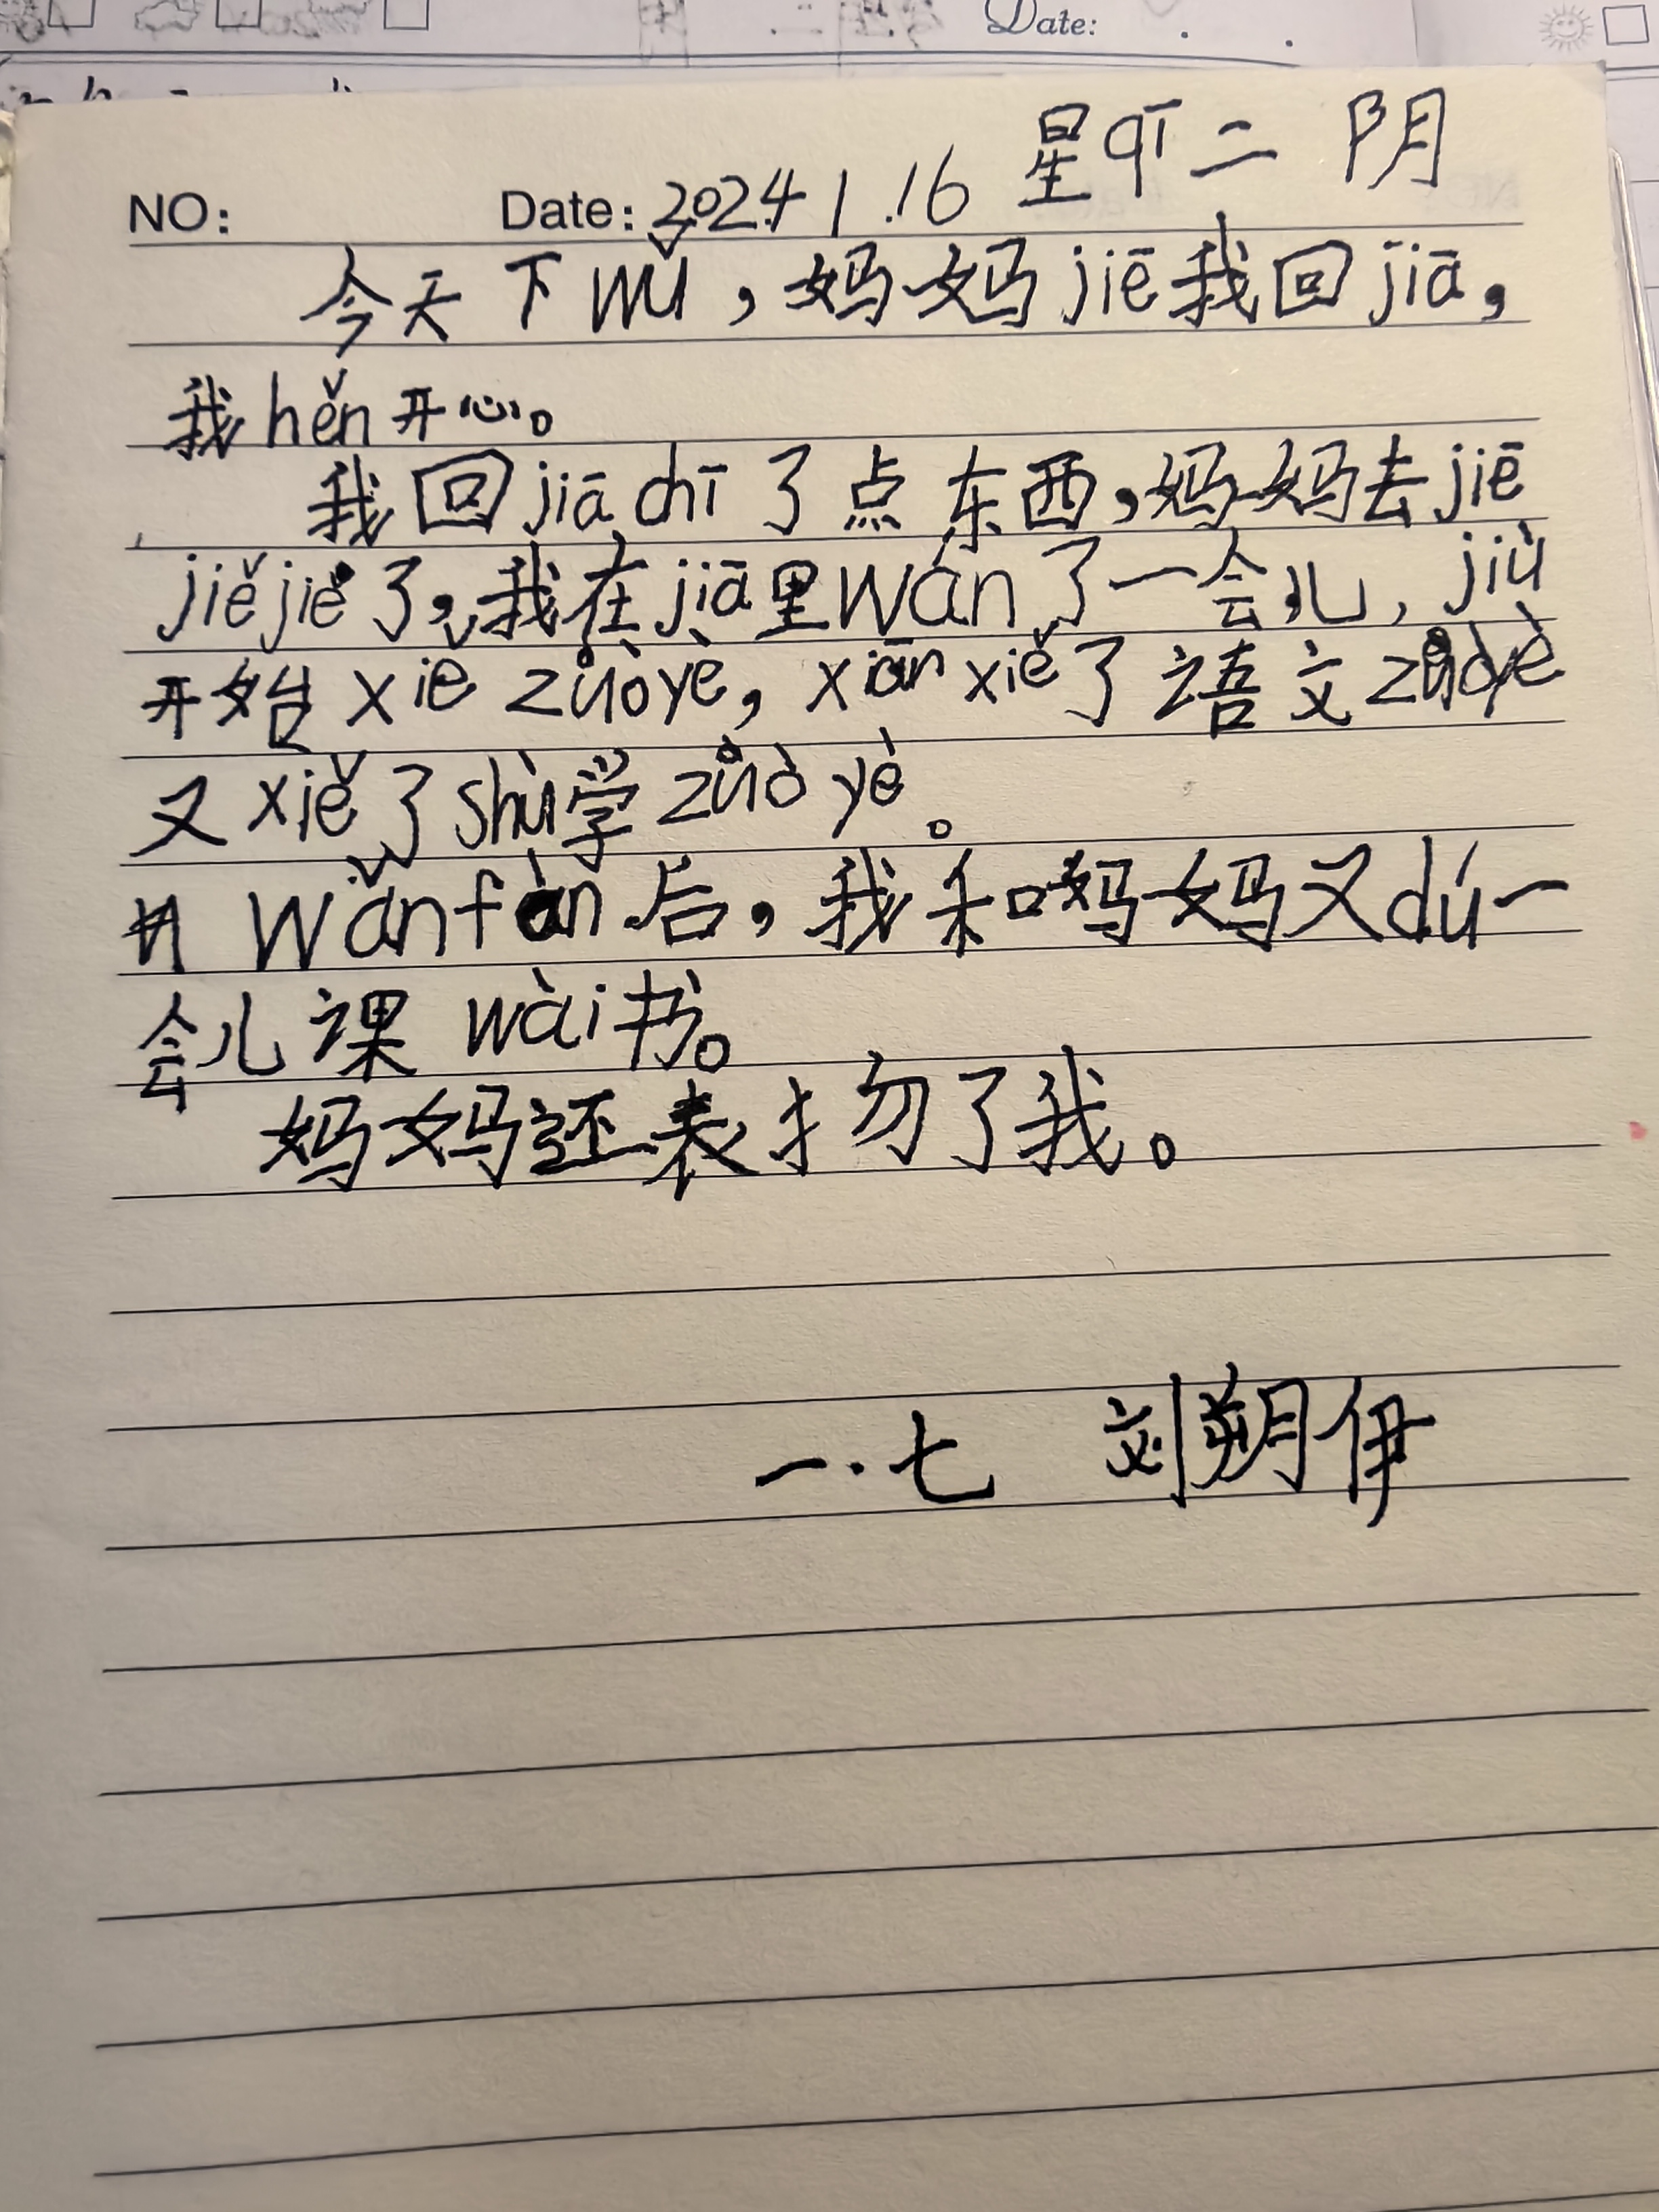 Date:
星qī二 阴
NO: Date: 2024 1.16
今天下wǔ，妈妈jiē我回jiā，
我hěn开心。
我回jiā chī了点东西，妈妈去jiē
jiějie了，我在jiā里wán了一会儿，jiù
开始xiě zuòyè，xiān xiě了语文zuòyè
又xiě了shù学zuòyè。
wǎnfàn后，我和妈妈又dú一
会儿课wài书。
妈妈还表扬了我。
一.七 刘朔伊